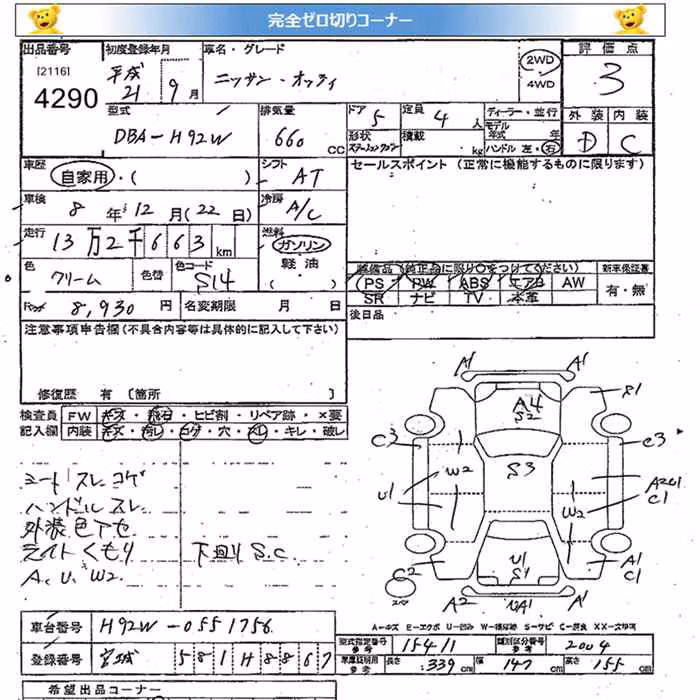 完全ゼロ切りコーナー
出品番号 初度登録年月 車名・グレード 評価点
[2116] 平成
4290 21 9月 ニッサン・オッティ 2WD 4WD 3
型式 排気量 ドア 5 定員 4人 ディーラー・並行 外装 内装
DBA-H92W 660 CC 形状 ステーションワゴン 積載 kg モデル年式 年 ハンドル 左・右 D C
車歴 自家用・( ) シフト AT セールスポイント (正常に機能するものに限ります)
車検 8年12月(22日) 冷房 A/C
走行 13万2千663km 燃料 ガソリン
色 クリーム 色替 色コード S14 軽油 ( )
装備品 (純正品に限り○をつけてください) 新車保証書
PS PW ABS エアB AW 有・無
SR ナビ TV 本革
8,930円 名変期限 月 日 後日品
注意事項申告欄(不具合内容等は具体的に記入して下さい)
修復歴 有 〔箇所 〕
検査員 FW キズ・飛石・ヒビ割・リペア跡・×要
記入欄 内装 キズ・汚レ・コゲ・穴・スレ・キレ・破レ
シートスレ コゲ
ハンドルスレ
外装色アセ
ライトくもり 下廻りS.C
A、U、W2
A1 A1
A4
S2
S1
C3 C3
W2 S3
U1 A2U1
C1
W2
U1
S1
C2 A1
C1
A2 UA1 A1
A-キズ E-エクボ U-凹み W-補修跡 S-サビ C-腐食 XX-交換済
車台番号 H92W-0551756
登録番号 宮城 581 H 8867
型式指定番号 参考 15411 類別区分番号 参考 2004
車庫証明用 参考 長さ 339cm 幅 147cm 高さ 155cm
希望出品コーナー